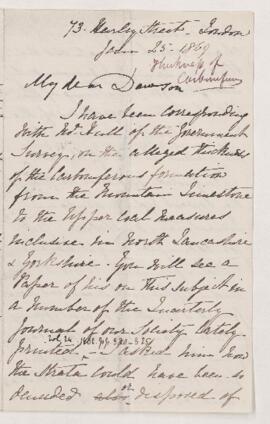 73. Harley Street, London
Jan 25. 1869
Thickness of
Carboniferous
My dear Dawson
I have been corresponding
with Mr. Hull of the Government
Survey, on the alleged thickness
of the carboniferous formation
from the Mountain Limestone
to the Upper coal measures
inclusive in North Lancashire
& Yorkshire. You will see a
Paper of his on this subject in
a number of the Quarterly
Journal of our Society lately
printed. I asked him how
Vol. 24
the strata could have been so
denuded or disposed of